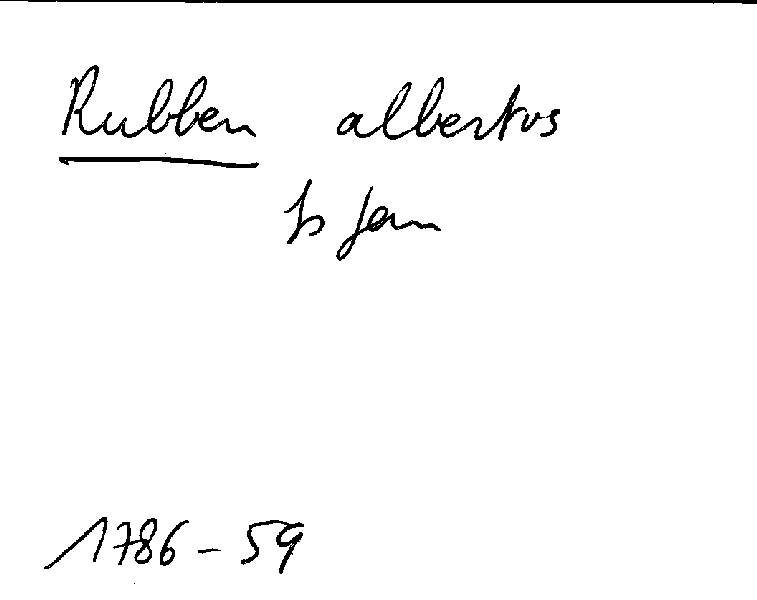 Rubben albertus
fs Jan
1786-59